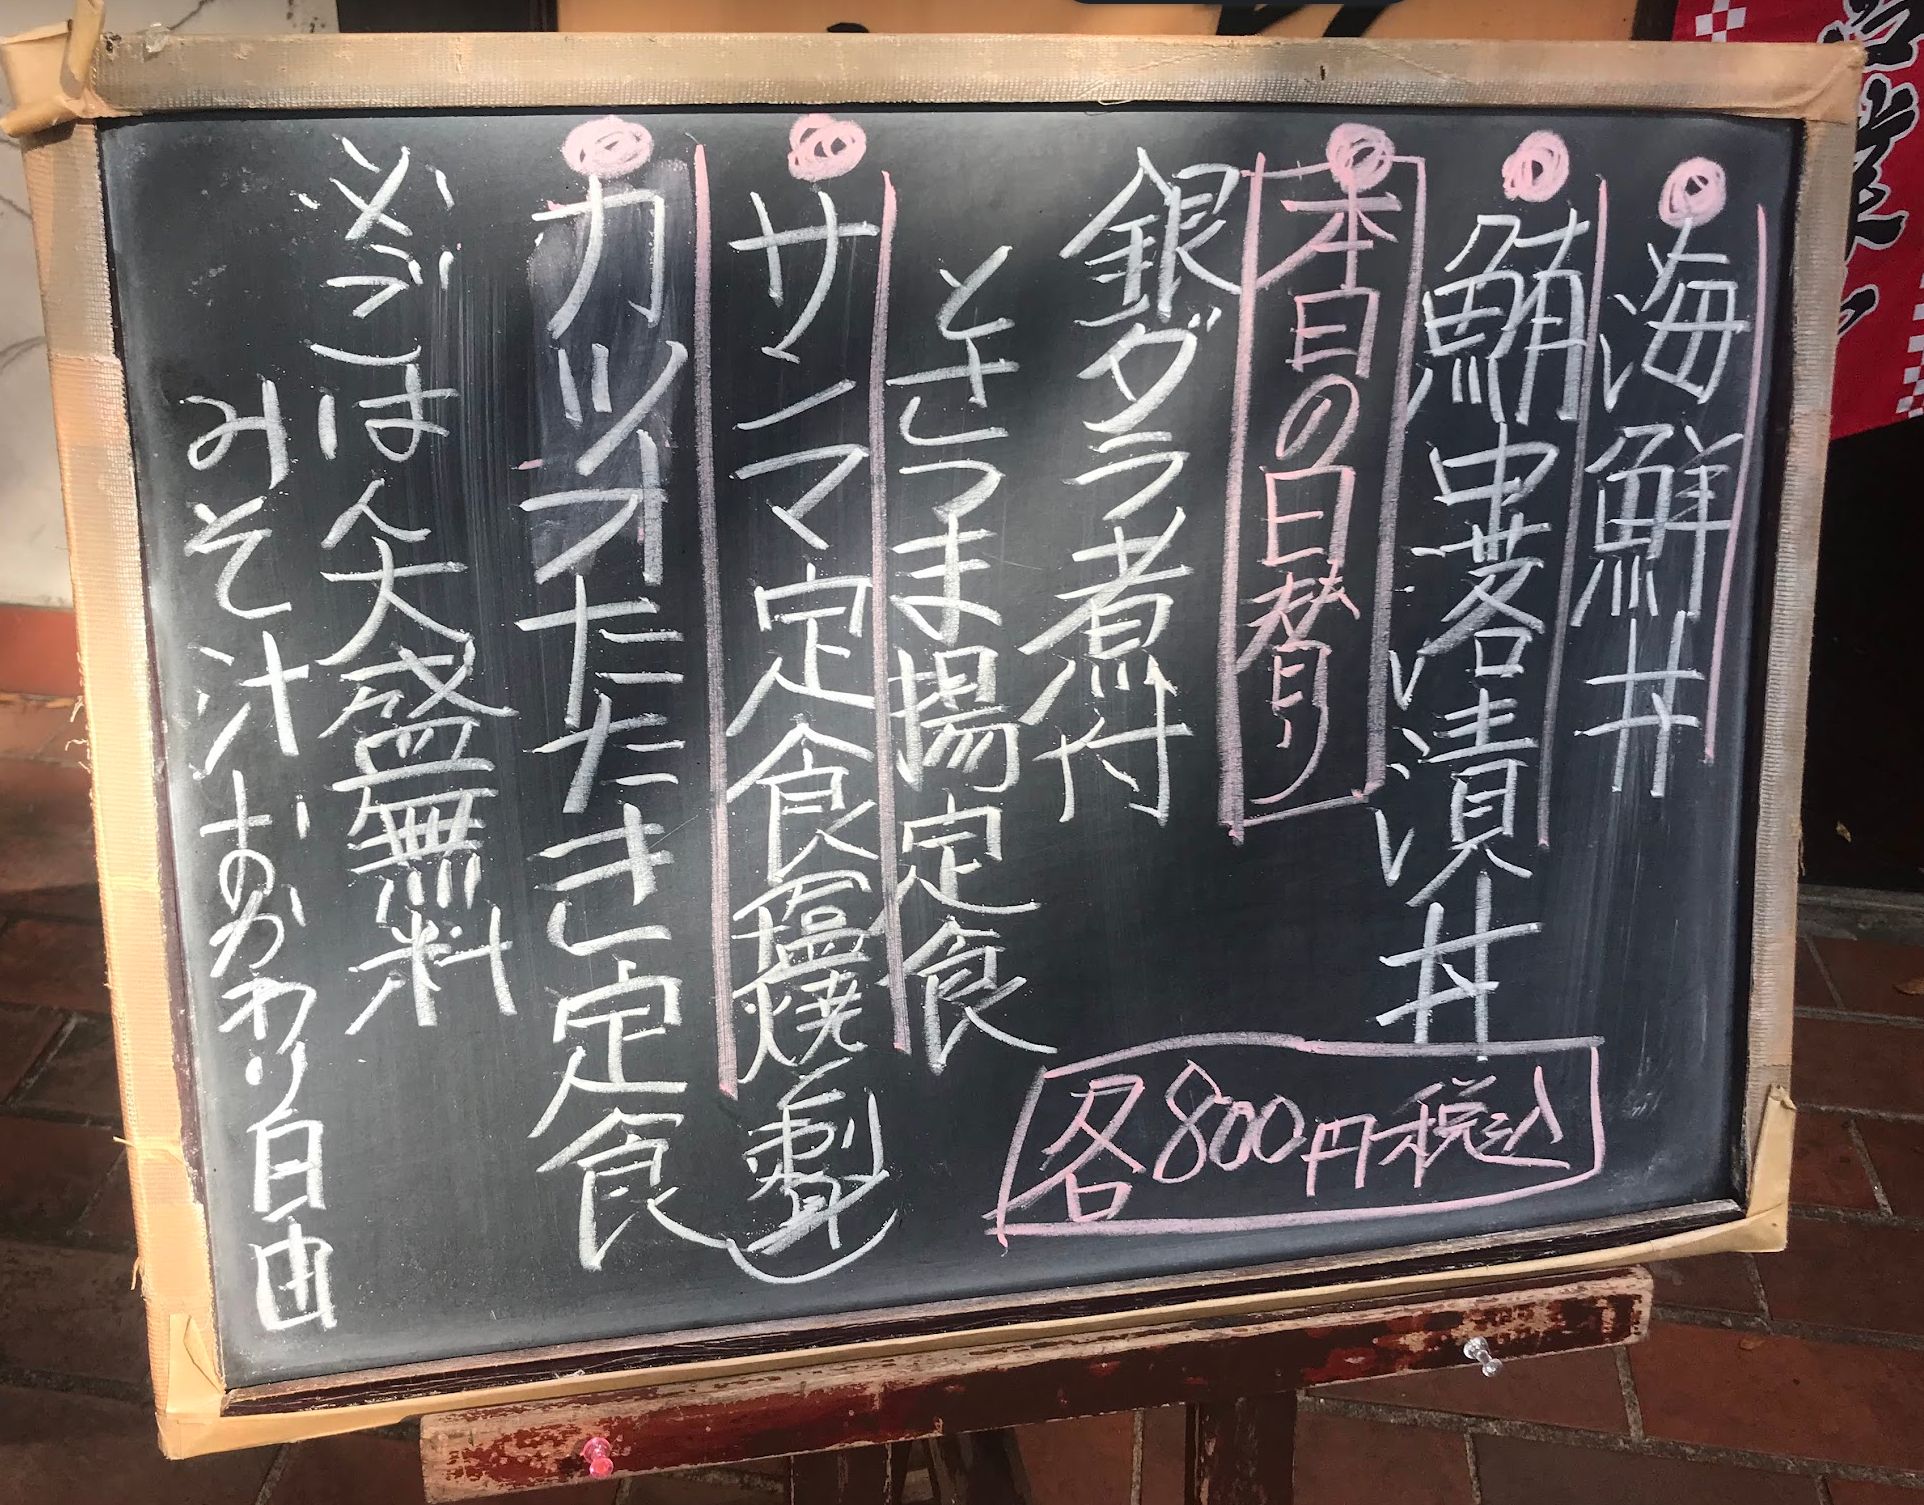 海鮮丼
鮪中落漬丼
本日の日替り
銀ダラ煮付
とさつま揚定食
サンマ定食(塩焼 刺)
カツオたたき定食
※ごはん大盛無料
みそ汁おかわり自由
各800円税込